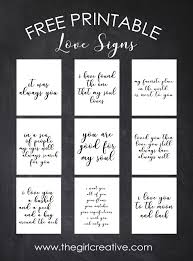 FREE PRINTABLE
Love Signs
it was
always you
i have found
the one
that my soul
loves
my favorite place
in the world is
next to you
in a sea of
people my
eyes will always
search for you
you are
good for
my soul
loved you then
love you still
always have
always will
i love you
a bushel and
a peck and
a hug around
the neck
i want you
all of you
i love you
to the moon
and back
www.thegirlcreative.com